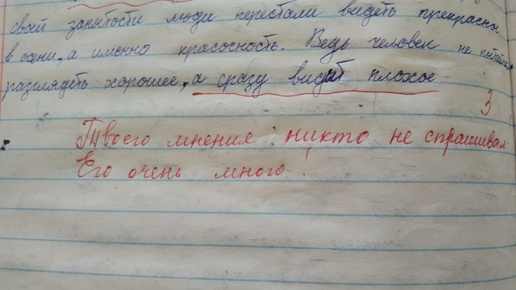 своей занятости люди перестали видеть прекрасны
в один, а именно красочность. Ведь человек не пытает
разглядеть хорошее, а сразу видит плохое
3
Твоего мнения никто не спрашивал
Его очень много